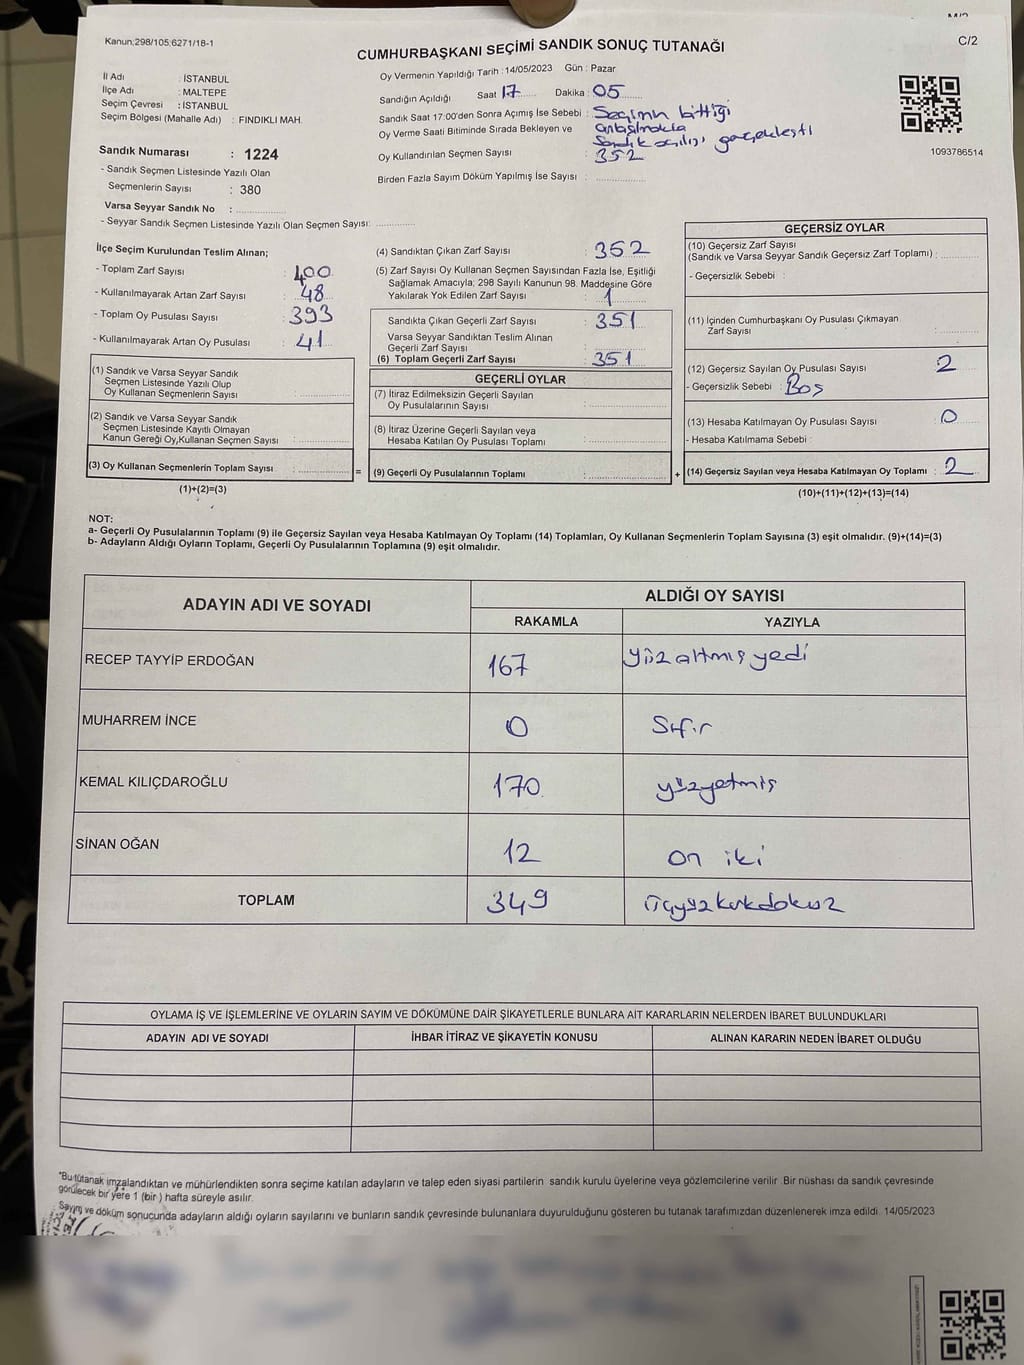 Kanun;298/105,6271/18-1
C/2
CUMHURBAŞKANI SEÇİMİ SANDIK SONUÇ TUTANAĞI
İl Adı : İSTANBUL
İlçe Adı : MALTEPE
Seçim Çevresi : İSTANBUL
Seçim Bölgesi (Mahalle Adı) : FINDIKLI MAH.
Sandık Numarası : 1224
- Sandık Seçmen Listesinde Yazılı Olan
Seçmenlerin Sayısı : 380
Varsa Seyyar Sandık No :
- Seyyar Sandık Seçmen Listesinde Yazılı Olan Seçmen Sayısı:
Oy Vermenin Yapıldığı Tarih :14/05/2023 Gün : Pazar
Sandığın Açıldığı Saat 17 Dakika 05
Sandık Saat 17:00'den Sonra Açımış İse Sebebi : Seçimin bittiği
Oy Verme Saati Bitiminde Sırada Bekleyen ve anlaşılmakla
Sandık açılışı gerçekleşti
Oy Kullandırılan Seçmen Sayısı : 352
Birden Fazla Sayım Döküm Yapılmış İse Sayısı :
1093786514
İlçe Seçim Kurulundan Teslim Alınan;
- Toplam Zarf Sayısı : 400
- Kullanılmayarak Artan Zarf Sayısı : 48
- Toplam Oy Pusulası Sayısı : 393
- Kullanılmayarak Artan Oy Pusulası : 41
(1) Sandık ve Varsa Seyyar Sandık
Seçmen Listesinde Yazılı Olup
Oy Kullanan Seçmenlerin Sayısı :
(2) Sandık ve Varsa Seyyar Sandık
Seçmen Listesinde Kayıtlı Olmayan
Kanun Gereği Oy,Kullanan Seçmen Sayısı :
(3) Oy Kullanan Seçmenlerin Toplam Sayısı : =
(1)+(2)=(3)
(4) Sandıktan Çıkan Zarf Sayısı : 352
(5) Zarf Sayısı Oy Kullanan Seçmen Sayısından Fazla İse, Eşitliği
Sağlamak Amacıyla; 298 Sayılı Kanunun 98. Maddesine Göre
Yakılarak Yok Edilen Zarf Sayısı : 1
Sandıkta Çıkan Geçerli Zarf Sayısı : 351
Varsa Seyyar Sandıktan Teslim Alınan
Geçerli Zarf Sayısı :
(6) Toplam Geçerli Zarf Sayısı : 351
GEÇERLİ OYLAR
(7) İtiraz Edilmeksizin Geçerli Sayılan
Oy Pusulalarının Sayısı :
(8) İtiraz Üzerine Geçerli Sayılan veya
Hesaba Katılan Oy Pusulası Toplamı :
(9) Geçerli Oy Pusulalarının Toplamı : +
GEÇERSİZ OYLAR
(10) Geçersiz Zarf Sayısı
(Sandık ve Varsa Seyyar Sandık Geçersiz Zarf Toplamı) :
- Geçersizlik Sebebi :
(11) İçinden Cumhurbaşkanı Oy Pusulası Çıkmayan
Zarf Sayısı :
(12) Geçersiz Sayılan Oy Pusulası Sayısı : 2
- Geçersizlik Sebebi : Boş
(13) Hesaba Katılmayan Oy Pusulası Sayısı : 0
- Hesaba Katılmama Sebebi :
(14) Geçersiz Sayılan veya Hesaba Katılmayan Oy Toplamı : 2
(10)+(11)+(12)+(13)=(14)
NOT:
a- Geçerli Oy Pusulalarının Toplamı (9) ile Geçersiz Sayılan veya Hesaba Katılmayan Oy Toplamı (14) Toplamları, Oy Kullanan Seçmenlerin Toplam Sayısına (3) eşit olmalıdır. (9)+(14)=(3)
b- Adayların Aldığı Oyların Toplamı, Geçerli Oy Pusulalarının Toplamına (9) eşit olmalıdır.
ADAYIN ADI VE SOYADI ALDIĞI OY SAYISI
RAKAMLA YAZIYLA
RECEP TAYYİP ERDOĞAN 167 yüz altmış yedi
MUHARREM İNCE 0 Sıfır
KEMAL KILIÇDAROĞLU 170 yüzyetmiş
SİNAN OĞAN 12 on iki
TOPLAM 349 üçyüzkırkdokuz
OYLAMA İŞ VE İŞLEMLERİNE VE OYLARIN SAYIM VE DÖKÜMÜNE DAİR ŞİKAYETLERLE BUNLARA AİT KARARLARIN NELERDEN İBARET BULUNDUKLARI
ADAYIN ADI VE SOYADI İHBAR İTİRAZ VE ŞİKAYETİN KONUSU ALINAN KARARIN NEDEN İBARET OLDUĞU
*Bu tutanak imzalandıktan ve mühürlendikten sonra seçime katılan adayların ve talep eden siyasi partilerin sandık kurulu üyelerine veya gözlemcilerine verilir .Bir nüshası da sandık çevresinde
görülecek bir yere 1 (bir ) hafta süreyle asılır.
Sayım ve döküm sonucunda adayların aldığı oyların sayılarını ve bunların sandık çevresinde bulunanlara duyurulduğunu gösteren bu tutanak tarafımızdan düzenlenerek imza edildi. 14/05/2023